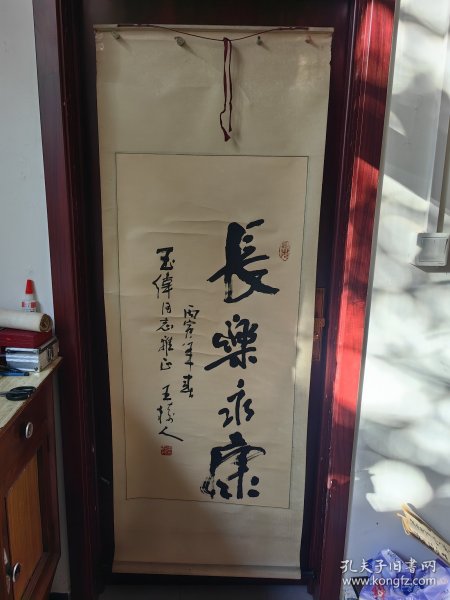 長樂永康
丙寅年春
玉偉同志雅正 王樹人
孔夫子旧书网
www.kongfz.com